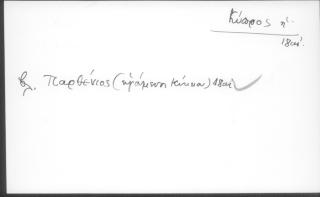 Κύπρος η'
18αι.
βλ. Παρθένιος (ηγούμενος Κύκκου) 18αι